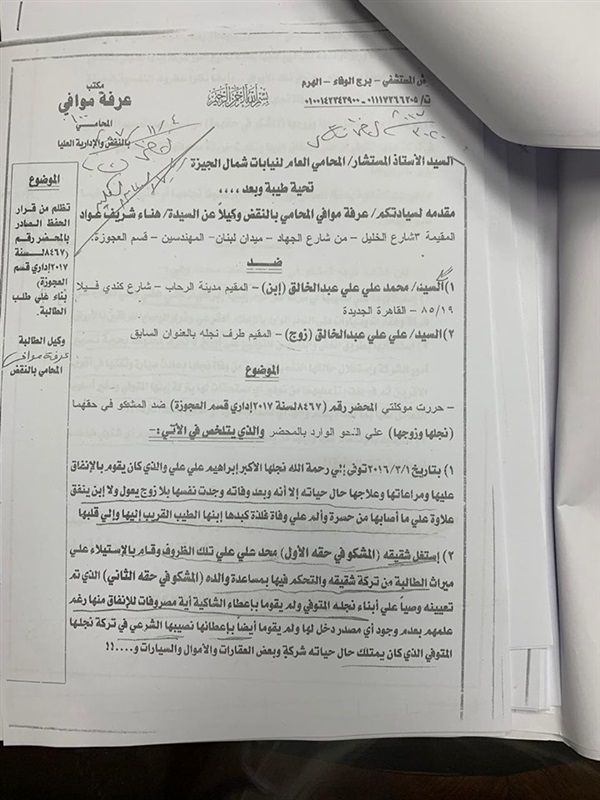 ش المستشفي - برج الوفاء - الهرم
ت/ ٠١١١٧٧٦٦٢٠٥ - ٠١٠٠١٤٢٣٤٣٩٠٠
بسم الله الرحمن الرحيم
مكتب
عرفة موافي
المحامي
بالنقض والإدارية العليا
السيد الأستاذ المستشار/ المحامي العام لنيابات شمال الجيزة
تحية طيبة وبعد ،،،،
مقدمه لسيادتكم/ عرفة موافي المحامي بالنقض وكيلاً عن السيدة/ هناء شريف عواد
المقيمة ٣شارع الخليل - من شارع الجهاد - ميدان لبنان- المهندسين - قسم العجوزة.
ضد
١) السيد/ محمد علي علي عبدالخالق (إبن) - المقيم مدينة الرحاب - شارع كندي فيلا
٨٥/١٩ - القاهرة الجديدة
٢) السيد/ علي علي عبدالخالق (زوج) - المقيم طرف نجله بالعنوان السابق
الموضوع
- حررت موكلتي المحضر رقم (٨٤٦٧لسنة ٢٠١٧ إداري قسم العجوزة) ضد المشكو في حقهما
(نجلها وزوجها) علي النحو الوارد بالمحضر والذي يتلخص في الآتي:-
١) بتاريخ ٢٠١٦/٣/١ توفي إلي رحمة الله نجلها الأكبر إبراهيم علي علي والذي كان يقوم بالإنفاق
عليها ومراعاتها وعلاجها حال حياته إلا أنه وبعد وفاته وجدت نفسها بلا زوج يعول ولا إبن ينفق
علاوة علي ما أصابها من حسرة وألم علي وفاة فلذة كبدها إبنها الطيب القريب إليها وإلي قلبها
٢) إستغل شقيقه (المشكو في حقه الأول) محد علي علي تلك الظروف وقام بالإستيلاء علي
ميراث الطالبة من تركة شقيقه والتحكم فيها بمساعدة والده (المشكو في حقه الثاني) الذي تم
تعيينه وصياً علي أبناء نجله المتوفي ولم يقوما بإعطاء الشاكية أية مصروفات للإنفاق منها رغم
علمهم بعدم وجود أي مصدر دخل لها ولم يقوما أيضاً بإعطائها نصيبها الشرعي في تركة نجلها
المتوفي الذي كان يمتلك حال حياته شركة وبعض العقارات والأموال والسيارات و....!!
الموضوع
تظلم من قرار
الحفظ الصادر
بالمحضر رقم
(٨٤٦٧لسنة
٢٠١٧إداري قسم
العجوزة)
بناء علي طلب
الطالبة.
وكيل الطالبة
عرفة موافي
المحامي بالنقض